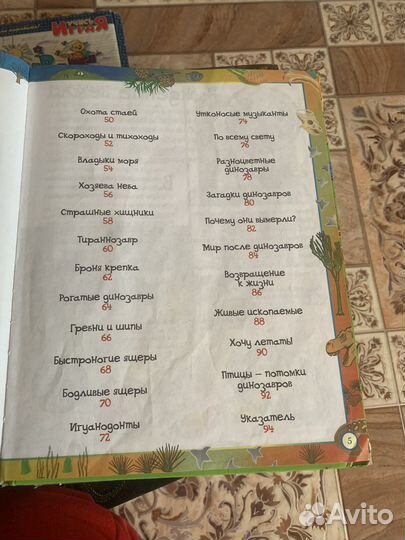 УЧИСЬ
ИГРАЯ
Охота стаей
50
Скороходы и тихоходы
52
Владыки моря
54
Хозяева неба
56
Страшные хищники
58
Тираннозавр
60
Броня крепка
62
Рогатые динозавры
64
Гребни и шипы
66
Быстроногие ящеры
68
Бодливые ящеры
70
Игуанодонты
72
Утконосые музыканты
74
По всему свету
76
Разноцветные
динозавры
78
Загадки динозавров
80
Почему они вымерли?
82
Мир после динозавров
84
Возвращение
к жизни
86
Живые ископаемые
88
Хочу летать!
90
Птицы – потомки
динозавров
92
Указатель
94
5
Avito